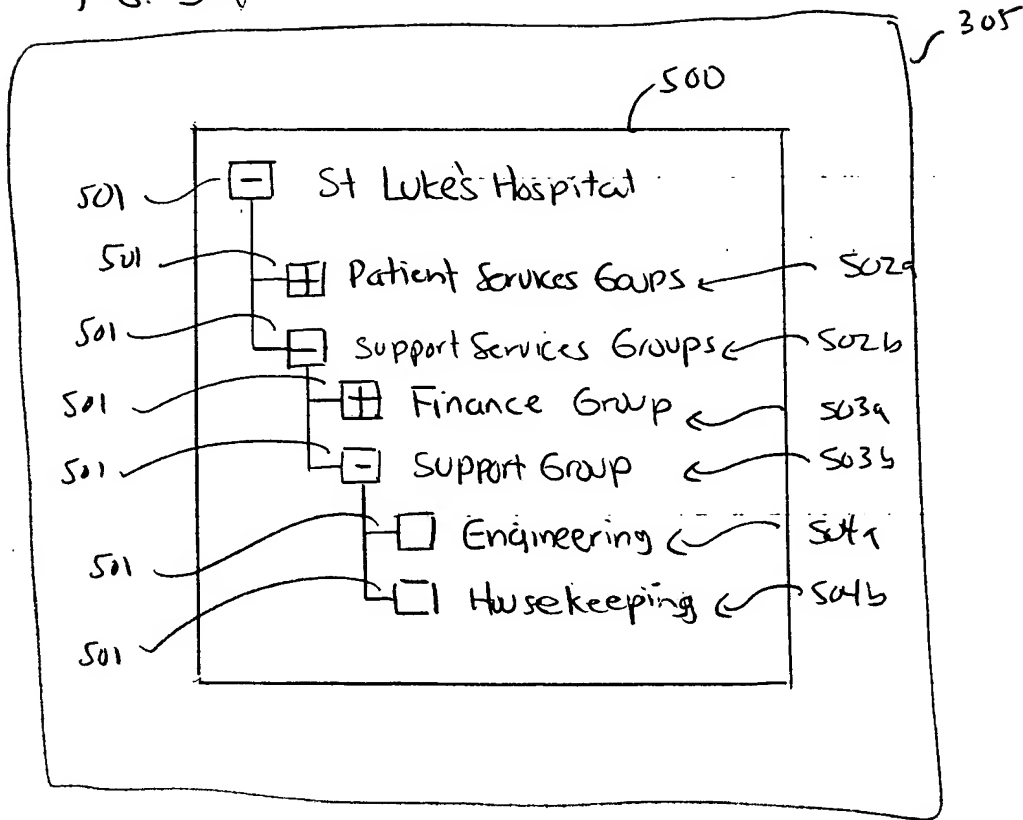 305
500
501 - St Luke's Hospital
501 + Patient Services Goups 502a
501 - Support Services Groups 502b
501 + Finance Group 503a
501 - Support Group 503b
501 Engineering 504a
501 Housekeeping 504b